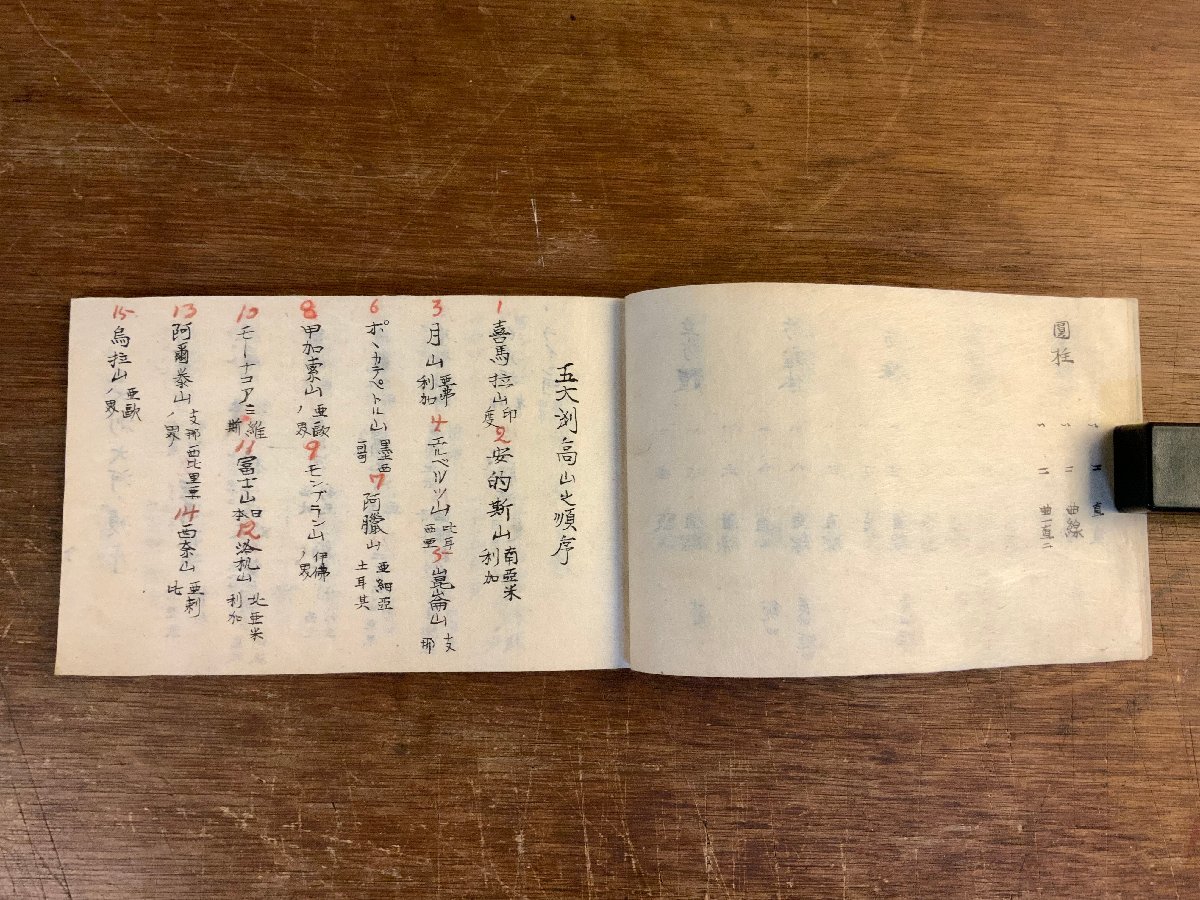 圓柱
〃 〃 直
〃 二 曲線
二 曲一直二
五大洲高山之順序
1 喜馬拉山 印度 2 安的斯山 南亞米利加
3 月山 亜弗利加 4 エルベルツ山 比耳西亜 5 崑崙山 支那
6 ポヽカテペトル山 墨西哥 7 阿臘山 亜細亞土耳其
8 甲加索山 亜歐ノ界 9 モンブラン山 伊佛ノ界
10 モーナコア 維斯 11 冨士山 日本 12 洛机山 北亜米利加
13 阿爾泰山 支那西比里亜ノ界 14 西奈山 亜剌比
15 烏拉山 亜歐ノ界